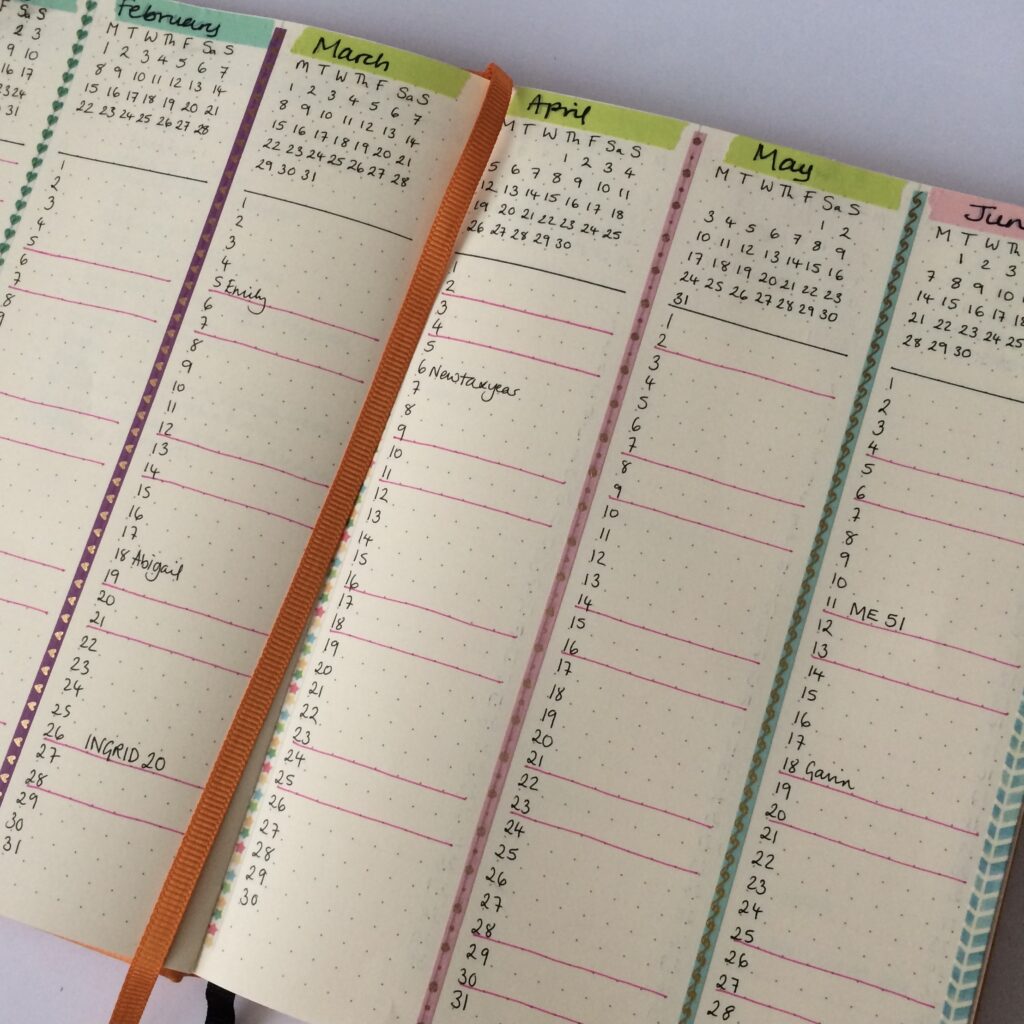 F Sa S
2 3
9 10
16 17
23 24
31
February
M T W Th F Sa S
1 2 3 4 5 6 7
8 9 10 11 12 13 14
15 16 17 18 19 20 21
22 23 24 25 26 27 28
1
2
3
4
5
6
7
8
9
March
M T W Th F Sa S
1 2 3 4 5 6 7
8 9 10 11 12 13 14
15 16 17 18 19 20 21
22 23 24 25 26 27 28
29 30 31
1
2
3
4
5 Emily
6
7
8
9
10
11
12
13
14
15
16
17
18 Abigail
19
20
21
22
23
24
25
26 INGRID 20
27
28
29
30
31
April
M T W Th F Sa S
1 2 3 4
5 6 7 8 9 10 11
12 13 14 15 16 17 18
19 20 21 22 23 24 25
26 27 28 29 30
1
2
3
4
5
6 New tax year
7
8
9
10
11
12
13
14
15
16
17
18
19
20
21
22
23
24
25
26
27
28
29
30
May
M T W Th F Sa S
1 2
3 4 5 6 7 8 9
10 11 12 13 14 15 16
17 18 19 20 21 22 23
24 25 26 27 28 29 30
31
1
2
3
4
5
6
7
8
9
10
11
12
13
14
15
16
17
18
19
20
21
22
23
24
25
26
27
28
29
30
31
Jun
M T W Th
1 2 3
7 8 9 10
14 15 16 17
21 22 23 24 25
28 29 30
1
2
3
4
5
6
7
8
9
10
11 ME 51
12
13
14
15
16
17
18 Gavin
19
20
21
22
23
24
25
26
27
28